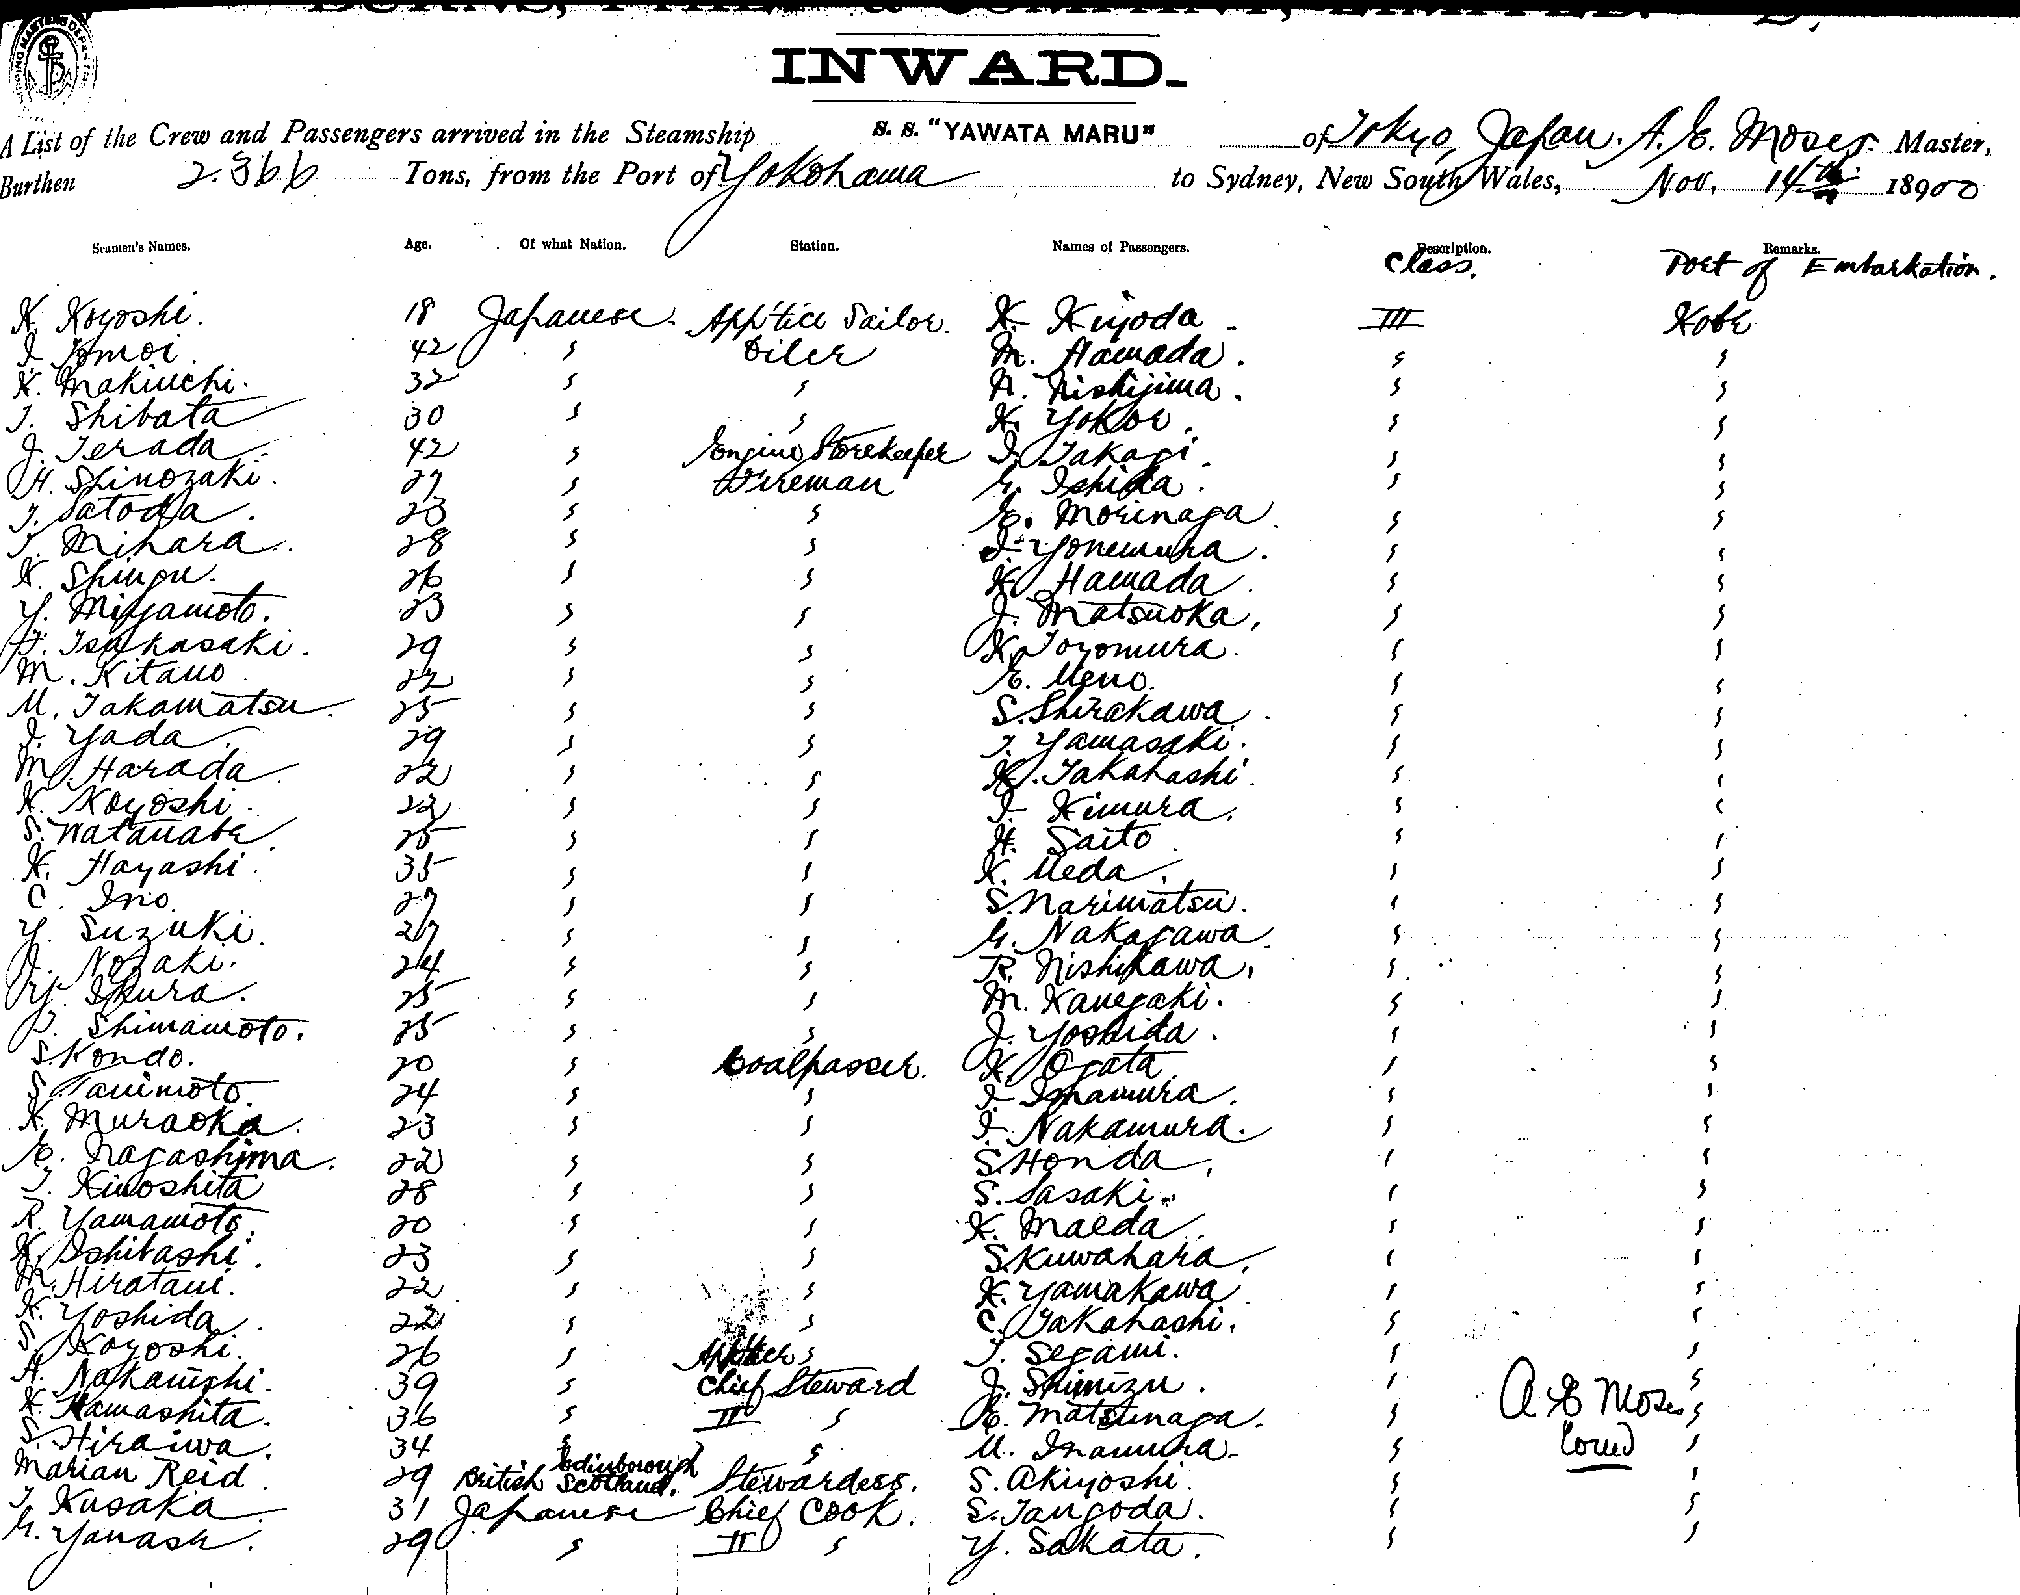 INWARD.
A List of the Crew and Passengers arrived in the Steamship S. S. "YAWATA MARU" of Tokyo, Japan. A. E. Moses. Master,
Burthen 2.366 Tons, from the Port of Yokohama to Sydney, New South Wales, Nov. 14th 18900
Seamen's Names. Age. Of what Nation. Station. Names of Passengers. Description. Remarks.
Class. Port of Embarkation.
K. Koyoshi. 18 Japanese. App'tice Sailor. K. Kiyoda III Kobe
I. Omoi. 42 s Oiler M. Hamada. s s
K. Makiuchi. 32 s s N. Nishijima. s s
T. Shibata 30 s s K. Yokoe. s s
J. Terada 42 s Engine Storekeeper I. Takagi. s s
H. Shinozaki. 27 s Fireman G. Ishida. s s
T. Satoda. 23 s s E. Morinaga. s s
T. Mihara. 28 s s I. Yonemura. s s
K. Shingu. 26 s s K. Hamada. s s
Y. Miyamoto. 23 s s J. Matsuoka, s s
T. Tsukasaki. 29 s s K. Toyomura. s s
M. Kitano 22 s s E. Ueno. s s
U. Takamatsu. 25 s s S. Shirakawa. s s
I. Yada. 29 s s T. Yamasaki. s s
M. Harada. 22 s s K. Takahashi s s
K. Koyoshi. 22 s s I. Kimura. s s
S. Watanabe. 25 s s H. Saito s s
K. Hayashi. 35 s s K. Ueda. s s
C. Ino. 27 s s S. Narimatsu. s s
Y. Suzuki. 27 s s G. Nakagawa. s s
N. Nozaki. 24 s s R. Nishikawa. s s
Y. Ikura. 25 s s M. Kanegaki. s s
T. Shimamoto. 25 s s J. Yoshida. s s
S. Kondo. 20 s Coalpasser. K. Ogata s s
S. Tanimoto. 24 s s I. Imamura. s s
K. Muraoka. 23 s s I. Nakamura. s s
E. Nagashima. 22 s s S. Honda. s s
T. Kinoshita 28 s s S. Sasaki. s s
R. Yamamoto. 20 s s K. Maeda. s s
K. Ishibashi. 23 s s S. Kuwahara. s s
M. Hiratani. 22 s s K. Yamakawa. s s
K. Yoshida. 22 s s C. Takahashi. s s
S. Koyoshi. 26 s s T. Segami. s s
N. Nakanishi. 39 s Chief Steward J. Shimizu. s s
K. Hamashita. 36 s II s E. Matsunaga. s A E Moses s
S. Hiraiwa. 34 s s U. Inamura. s Comd s
Marian Reid. 29 British Edinborough Scotland. Stewardess. S. Akiyoshi. s s
T. Kusaka. 31 Japanese Chief Cook. S. Tangoda. s s
G. Yanase. 29 s II s Y. Sakata. s s